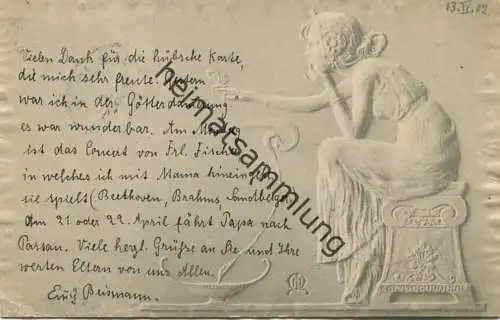 13. IV. 02
Vielen Dank für die hübsche Karte,
die mich sehr freute. Gestern
war ich in der Götterdämmerung
es war wunderbar. Am Montag
ist das Concert von Frl. Fischer
in welches ich mit Mama hineingehe
sie spielt (Beethoven, Brahms,
Am 21 oder 22. April fährt Papa nach
Passau. Viele herzl. Grüße an Sie und Ihre
werten Eltern von uns Allen.
Beismann.
heimatsammlung